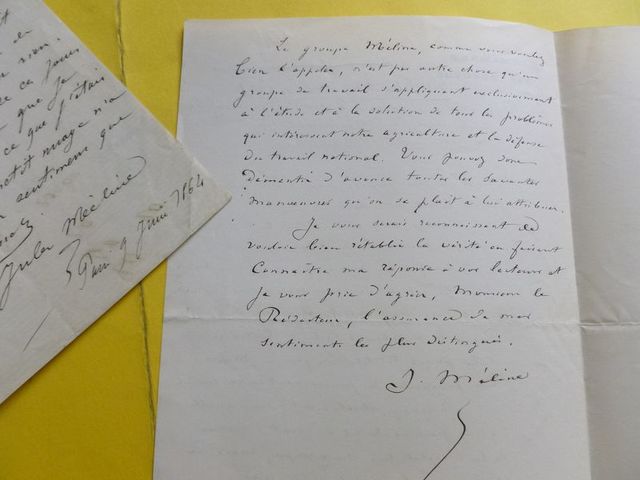 de
rien.
ce jour
que je
ce que j'étais
nuage n'a
sentiment que
Jules Méline
Paris 9 Juin 1864
Le groupe Méline, comme vous voulez
bien l'appeler, n'est pas autre chose qu'un
groupe de travail s'appliquant exclusivement
à l'étude et à la solution de tous les problèmes
qui intéressent notre agriculture et la défense
du travail national. Vous pouvez donc
démentir d'avance toutes les savantes
manoeuvres qu'on se plaît à lui attribuer.
Je vous serais reconnaissant de
vouloir bien rétablir la vérité en faisant
connaître ma réponse à vos lecteurs et
je vous prie d'agréer, Monsieur le
Rédacteur, l'assurance de mes
sentiments les plus distingués.
J. Méline